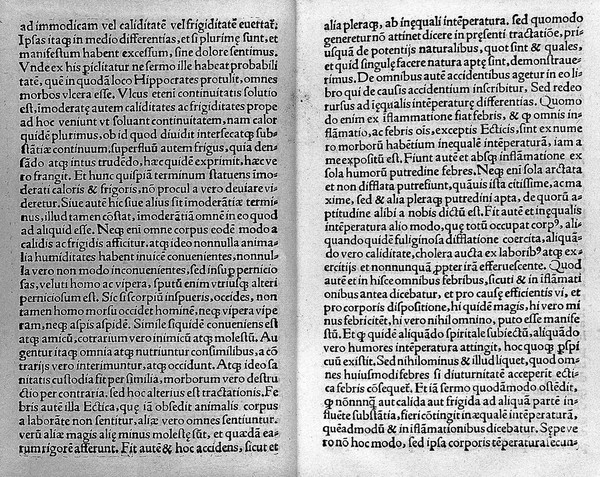 ad immodicam vel caliditatē vel frigiditatē euertat:
Ipsas itaq; in medio differentias, et si plurimę sunt, et
manifestum habent excessum, sine dolore sentimus.
Vnde ex his piclitatur ne sermo ille habeat probabili
tatē, quē in quodā loco Hippocrates protulit, omnes
morbos vlcera esse. Vlcus eteni continuitatis solutio
est, imoderatę autem caliditates ac frigiditates prope
ad hoc veniunt vt soluant continuitatem, nam calor
quidē plurimus, ob id quod diuidit intersecatq; sub⸗
stātiæ continuum, superfluū autem frigus, quia den⸗
sādo atq; intus trudēdo, hæc quidē exprimit, hæc ve
ro frangit. Et hunc quispiā terminum statuens imo
derati caloris & frigoris, nō procul a vero deuiare vi
deretur. Siue autē hic siue alius sit imoderātiæ termi⸗
nus, illud tamen cōstat, imoderātiā omnē in eo quod
ad aliquid esse. Neq; eni omne corpus eodē modo a
calidis ac frigidis afficitur, atq; ideo nonnulla anima⸗
lia humiditates habent inuicē conuenientes, nonnul⸗
la vero non modo inconuenientes, sed insup pernicio
sas, veluti homo ac vipera, sputū enim vtriusq; alteri
perniciosum est. Sic si scorpiū inspueris, occides, non
tamen homo morsu occidet hominē, neq; vipera vipe
ram, neq; aspis aspidē. Simile siquidē conueniens est
atq; amicū, cotrarium vero inimicū atq; molestū. Au
gentur itaq; omnia atq; nutriuntur consimilibus, a cō
trarijs vero interimuntur, atq; occidunt. Atq; ideo sa
nitatis custodia fit per similia, morborum vero destru
ctio per contraria. sed hoc alterius est tractationis. Fe
bris autē illa Ectica, quę iā obsedit animalis corpus
a laborāte non sentitur, aliæ vero omnes sentiuntur.
verū aliæ magis alię minus molestę sūt, et quædā ea⸗
rum rigorē afferunt. Fit autē & hoc accidens, sicut et
alia pleraq;, ab inęquali intēperatura. sed quomodo
generetur nō attinet dicere in pręsenti tractatiōe, pri⸗
usquā de potentijs naturalibus, quot sint & quales,
et quid singulę facere natura aptę sint, demonstraue⸗
rimus. De omnibus autē accidentibus agetur in eo li
bro qui de causis accidentium inscribitur. Sed redeo
rursus ad ięqualis intēperaturę differentias. Quomo
do enim ex iflammatione fiat febris, & q omnis in
flāmatio, ac febris ois, exceptis Ecticis, sint ex nume
ro morborū habētium inequalē intēperaturā, iam a
me expositū est. Fiunt autē et absq; inflāmatione ex
sola humorū putredine febres. Neq; eni sola arctata
et non difflata putrefiunt, quāuis ista citissime, ac ma
xime, sed & alia pleraq; putredini apta, de quorū a⸗
ptitudine alibi a nobis dictū est. Fit autē et inęqualis
intēperatura alio modo, quę totū occupat corpꝰ, ali⸗
quando quidē fuliginosa difflatione coercita, aliquā⸗
do vero caliditate, cholera aucta ex laboribꝰ atq; ex⸗
ercitijs et nonnunquā ppter irā efferuescente. Quod
autē et in hisce omnibus febribus, sicuti & in iflāmati
onibus antea dicebatur, et pro causę efficientis vi, et
pro corporis dispositione, hi quidē magis, hi vero mi
nus febricitēt, hi vero nihil omnino, puto esse manife
stū. Et q quidē aliquādo spiritale subiectū, aliquādo
vero humores intēperatura attingit, hoc quoq; pspi
cuū existit. Sed nihilominus & illud liquet, quod om⸗
nes huiusmodi febres si diuturnitatē acceperit ecti⸗
ca febris cōsequet. Et iā sermo quodāmodo ostēdit,
q nōnnnq aut calida aut frigida ad aliquā partē in⸗
fluēte substātia, fieri cōtingit inæqualē intēperaturā,
quēadmodū & in iflāmationibus dicebatur. Sępe ve
ro nō hoc modo, sed ipsa corporis tēperatura secun⸗